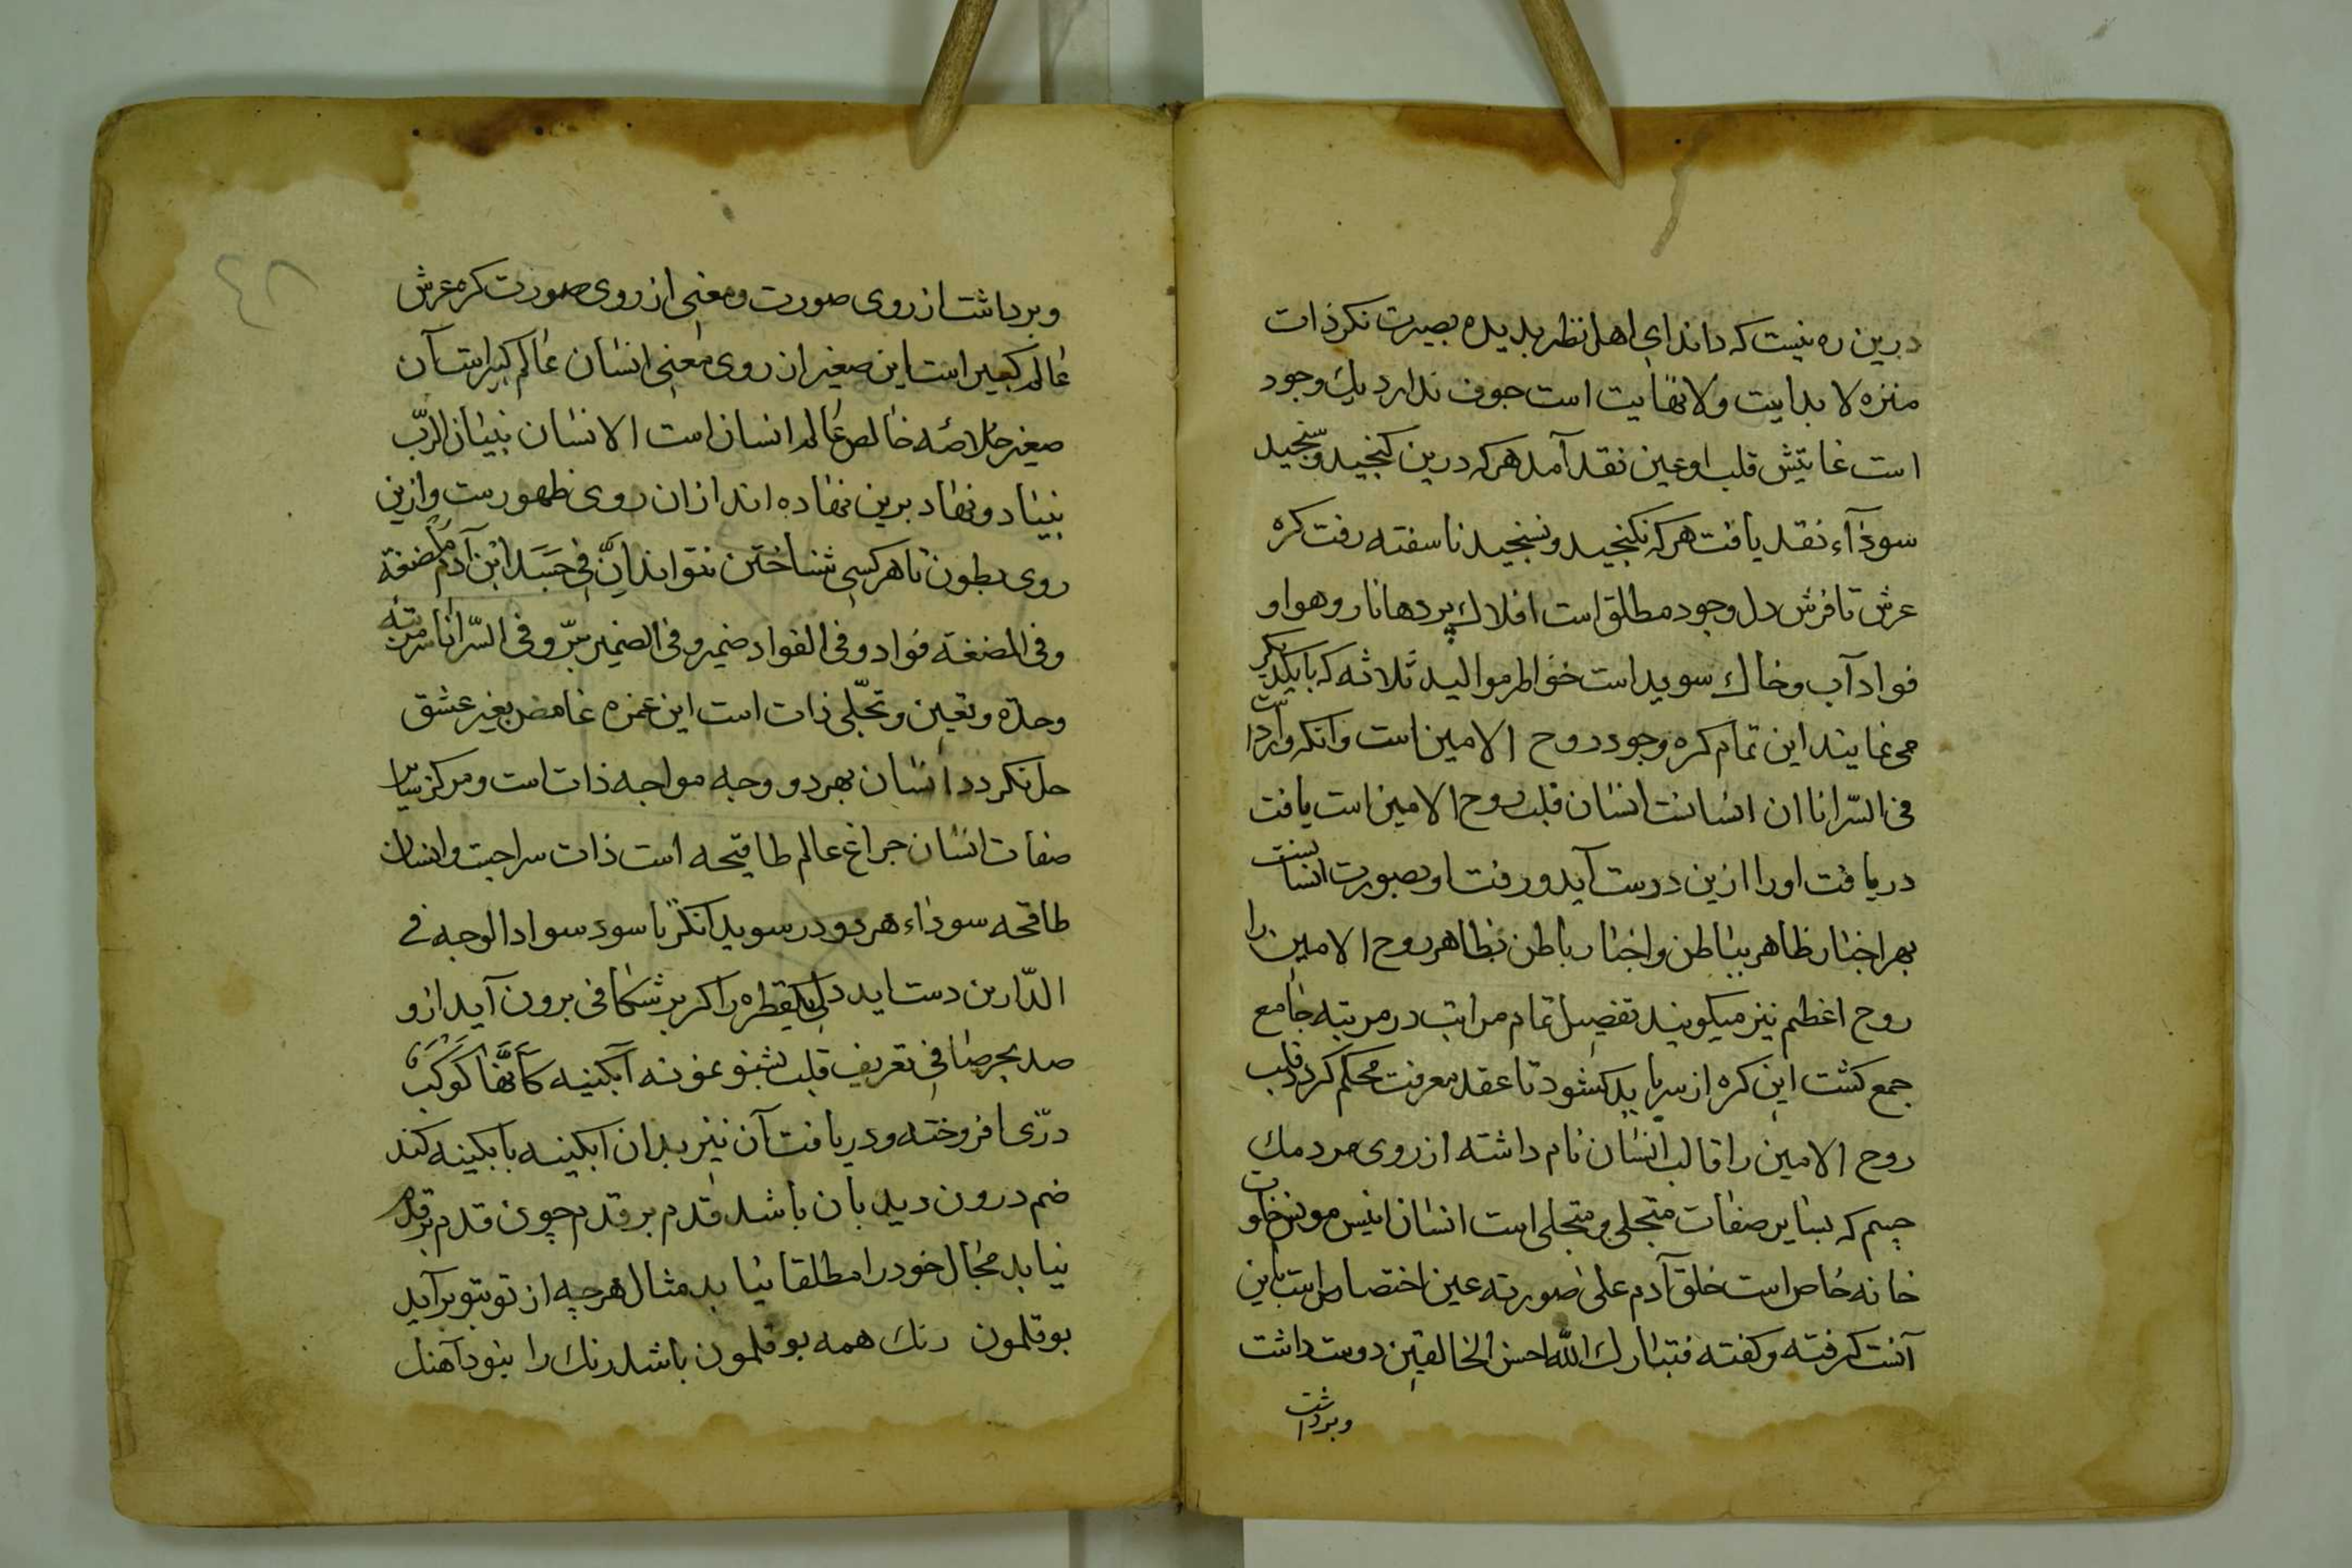 درین ره نیست که داند ای اهل نظر بدیده بصیرت نکر ذات
منزه لا بدایت ولا نهایت است جوف ندارد یك وجود
است غایتش قلب او عین نقد آمد هرکه درین کنجید وسنجید
سوداء نقد یافت هرکه نکنجید ونسنجید ناسفته رفت کره
عرش تا فرش دل وجود مطلق است افلاك پردها نار وهوا و
فواد آب وخاك سویدا است خواطر موالید ثلاثه که بایکدیکر
می نمایند این تمام کره وجود روح الامین است وانکه وارد است
فی السّر انا ان انسانست انسان قلب روح الامین است یافت
دریافت اورا ازین دوست آید ورفت او بصورت انسانیست
بهر اخبار ظاهر بباطن واخبار باطن بظاهر روح الامین را
روح اعظم نیز میکویند تفصیل تمام مراتب در مرتبه جامع
جمع کشت این کره از سر باید کشود تا عقد معرفت محکم کردد قلب
روح الامین را قالب انسان نام داشته از روی مردمك
چشم که بسایر صفات متجلی ومتجلی است انسان انیس مونس خلوت
خانه خاص است خلق آدم علی صورته عین اختصاص است باین
آنست کرفته وکفته فتبارك الله احسن الخالقین دوست داشت
وبرداشت
وبرداشت از روی صورت ومعنی از روی صورت کره عرش
عالم کبیر است این صغیر از روی معنی انسان عالم کبیر است آن
صغیر خلاصه خالص عالم انسان است الانسان بنیان الرّب
بنیاد ونهاد برین نهاده اند ازان روی ظهورست وازین
روی بطون تا هر کسی شناختن نتواند اِنَّ فی جَسَدِ ابْنِ آدَمَ لَمُضغة
وفی المضغة فواد وفی الفواد ضمیر وفی الضمیر سرّ وفی السّر انا سر مرتبه
وحدة وتعین وتجلّی ذات است این غمزه غامض بغیر عشق
حل نکردد انسان بهر دو وجه مواجه ذات است ومرکز سایر
صفات انسان جراغ عالم طاقیحه است ذات سراجست وانسان
طاقحه سوداء هر دو در سویدا نکر تا سود سواد الوجه فی
الدّارین دست اید دل یکقطره را اکر بر شکافی برون آید ازو
صد بحر صافی تعریف قلب بشنو نمونه آبکینه کَاَنَّهَا کَوْکَبٌ
درّی افروخته ودریافت آن نیز بدان ابکینه بابکینه کند
ضم درون دیدبان باشد قدم بر قدم چون قدم بر قدم
نیابد مجال خود را مطلقا نیابد مثال هرچه از توبتو برآید
بوقلمون رنك همه بوقلمون باشد رنك را بنود آهنك
٤٨